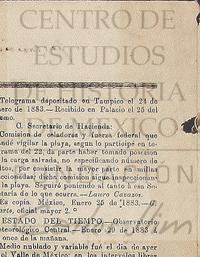 CENTRO DE
ESTUDIOS
DE HISTORIA
DE MEXICO
Telegrama depositado en Tampico el 24 de
ero de 1883.—Recibido en Palacio el 25 del
smo.
C. Secretario de Hacienda:
Comision de celadores y fuerza federal que
ndé vigilar la playa, segun lo participé en te-
grama del 22, da parte haber tomado posesion
la carga salvada, no especificando número de
ltos, por consistir la mayor parte en mallas
ccionadas; dicha comision sigue inspeccionan-
la playa. Seguiré poniendo al tanto á esa Se-
etaría de lo que ocurra.—Lauro Cavazos.
Es copia. México, Enero 25 de 1883.
arte, oficial mayor 2.º
ESTADO DEL TIEMPO.—Observatorio
eteorológico Central.—Enero 29 de 1883
once de la mañana.
Medio nublado y variable fué el dia de ayer
el Valle de México; en los intervalos libres